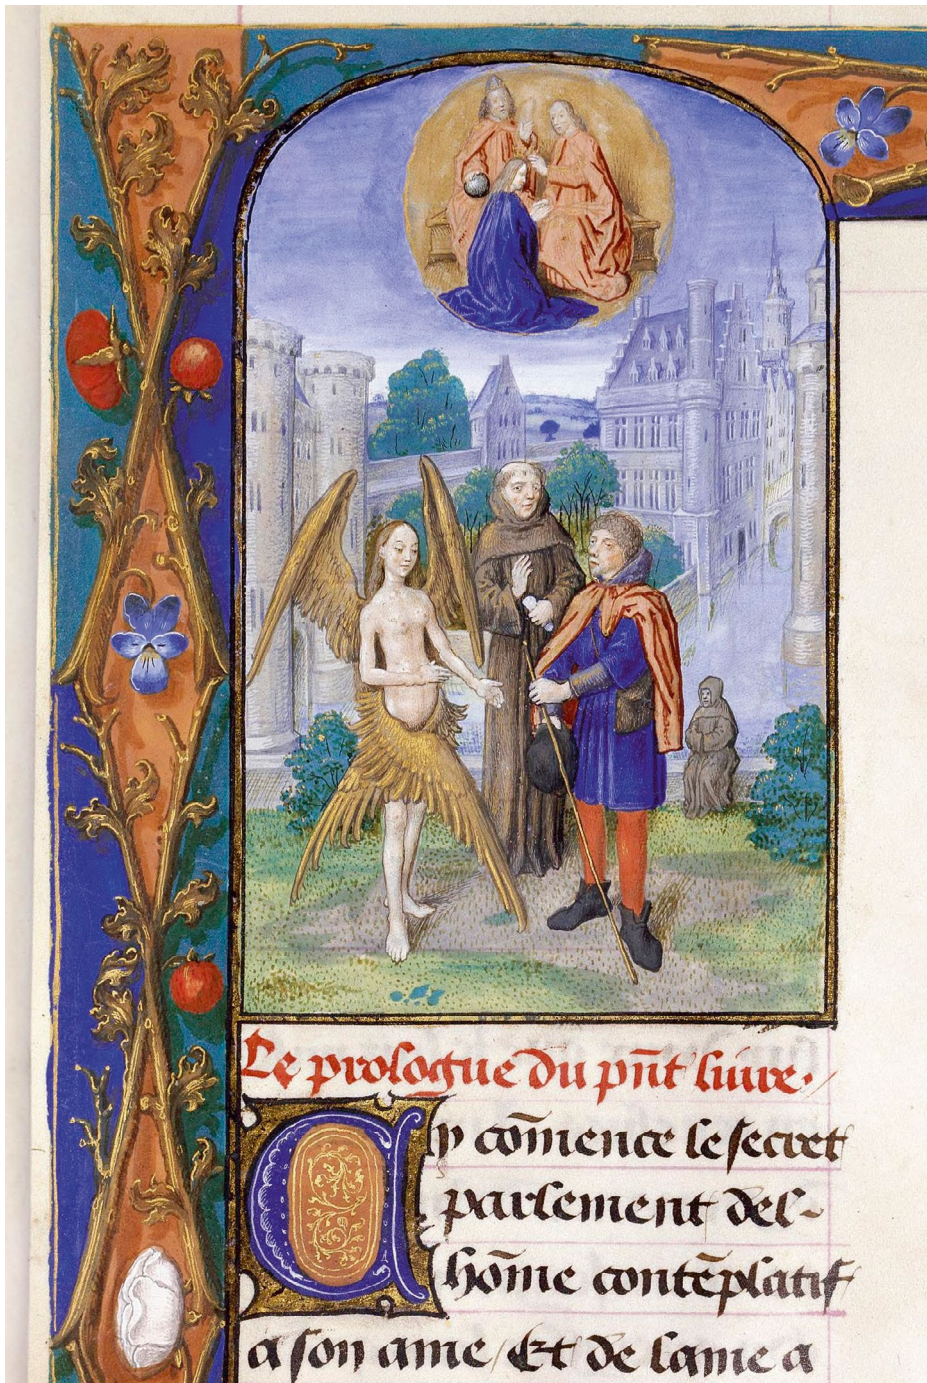 Le prologue du pn̄t liure.
Cy cōmence le secret
parlement del-
hōme contēplatif
a son ame / Et de lame a